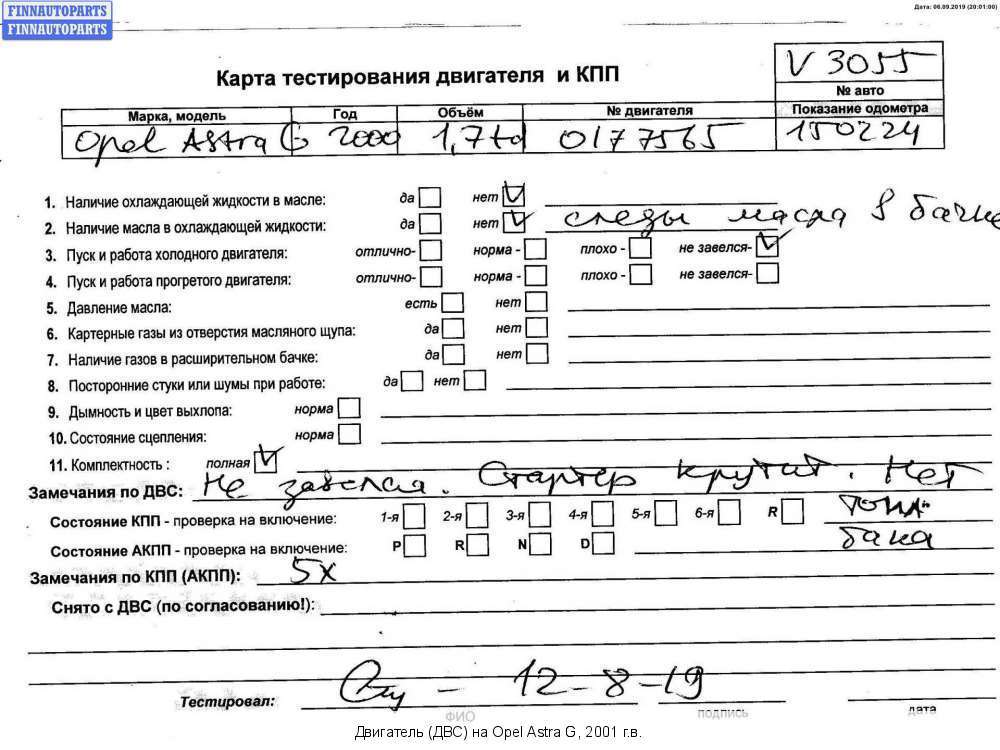 FINNAUTOPARTS
FINNAUTOPARTS
Дата: 06.09.2019 (20:01:00)
Карта тестирования двигателя и КПП
V 3055
№ авто
Марка, модель Год Объём № двигателя Показание одометра
Opel Astra G 2000 1,7td 0177565 150224
1. Наличие охлаждающей жидкости в масле: да нет
2. Наличие масла в охлаждающей жидкости: да нет следы масла в бачке
3. Пуск и работа холодного двигателя: отлично- норма - плохо - не завелся-
4. Пуск и работа прогретого двигателя: отлично- норма - плохо - не завелся-
5. Давление масла: есть нет
6. Картерные газы из отверстия масляного щупа: да нет
7. Наличие газов в расширительном бачке: да нет
8. Посторонние стуки или шумы при работе: да нет
9. Дымность и цвет выхлопа: норма
10. Состояние сцепления: норма
11. Комплектность : полная
Замечания по ДВС: Не завелся. Стартер крутит. Нет
Состояние КПП - проверка на включение: 1-я 2-я 3-я 4-я 5-я 6-я R топл.
Состояние АКПП - проверка на включение: P R N D бака
Замечания по КПП (АКПП): 5х
Снято с ДВС (по согласованию!):
Тестировал: - 12-8-19
ФИО подпись дата
Двигатель (ДВС) на Opel Astra G, 2001 г.в.